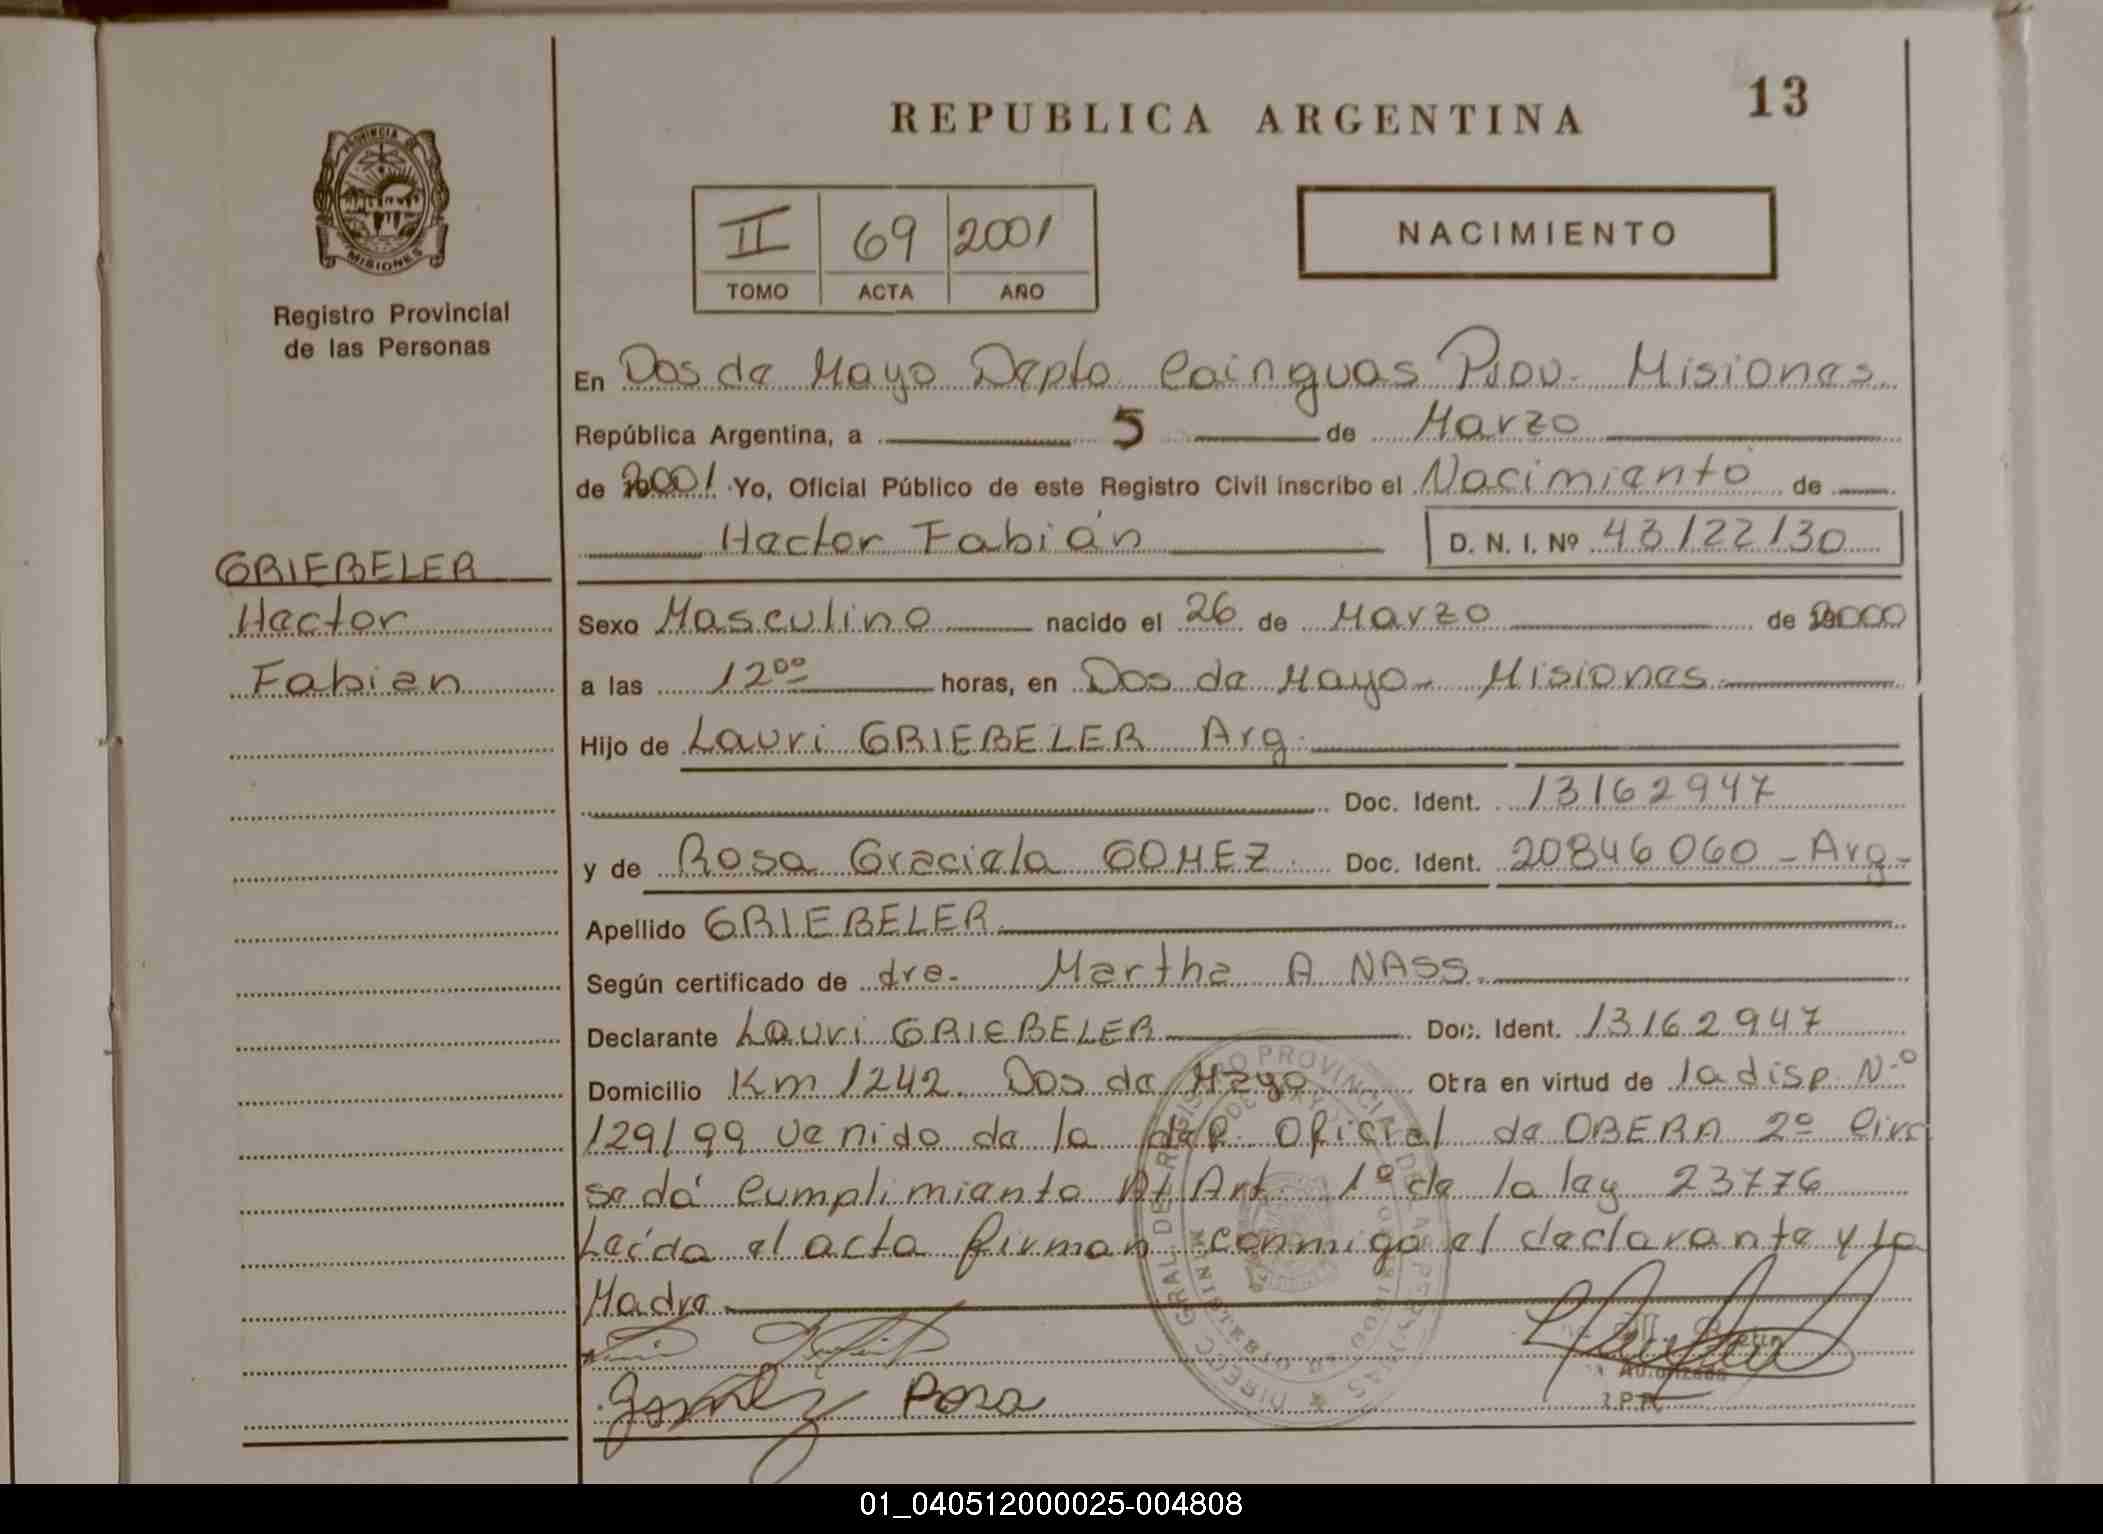 REPUBLICA ARGENTINA
13
PROVINCIA DE
MISIONES
Registro Provincial
de las Personas
II 69 2001
TOMO ACTA AÑO
NACIMIENTO
En Dos de Mayo Depto Cainguas Prov. Misiones
República Argentina, a 5 de Marzo
de 2001 Yo, Oficial Público de este Registro Civil inscribo el Nacimiento de
Hector Fabián D. N. I. Nº 43122130
GRIEBELER
Hector
Fabian
Sexo Masculino nacido el 26 de Marzo de 2000
a las 12ºº horas, en Dos de Mayo - Misiones
Hijo de Lauri GRIEBELER Arg.
Doc. Ident. 13162947
y de Rosa Graciela GOMEZ. Doc. Ident. 20846060 - Arg -
Apellido GRIEBELER
Según certificado de dra. Martha A NASS.
Declarante Lauri GRIEBELER Doc. Ident. 13162947
Domicilio Km 1242. Dos de Mayo Otra en virtud de la disp. N.º
129/99 venido de la del. Oficial de OBERA 2º Circ
se dá cumplimiento Al Art. 1º de la ley 23776
Leída el acta firman conmigo el declarante y la
Madre
Gomez Rosa
01_040512000025-004808